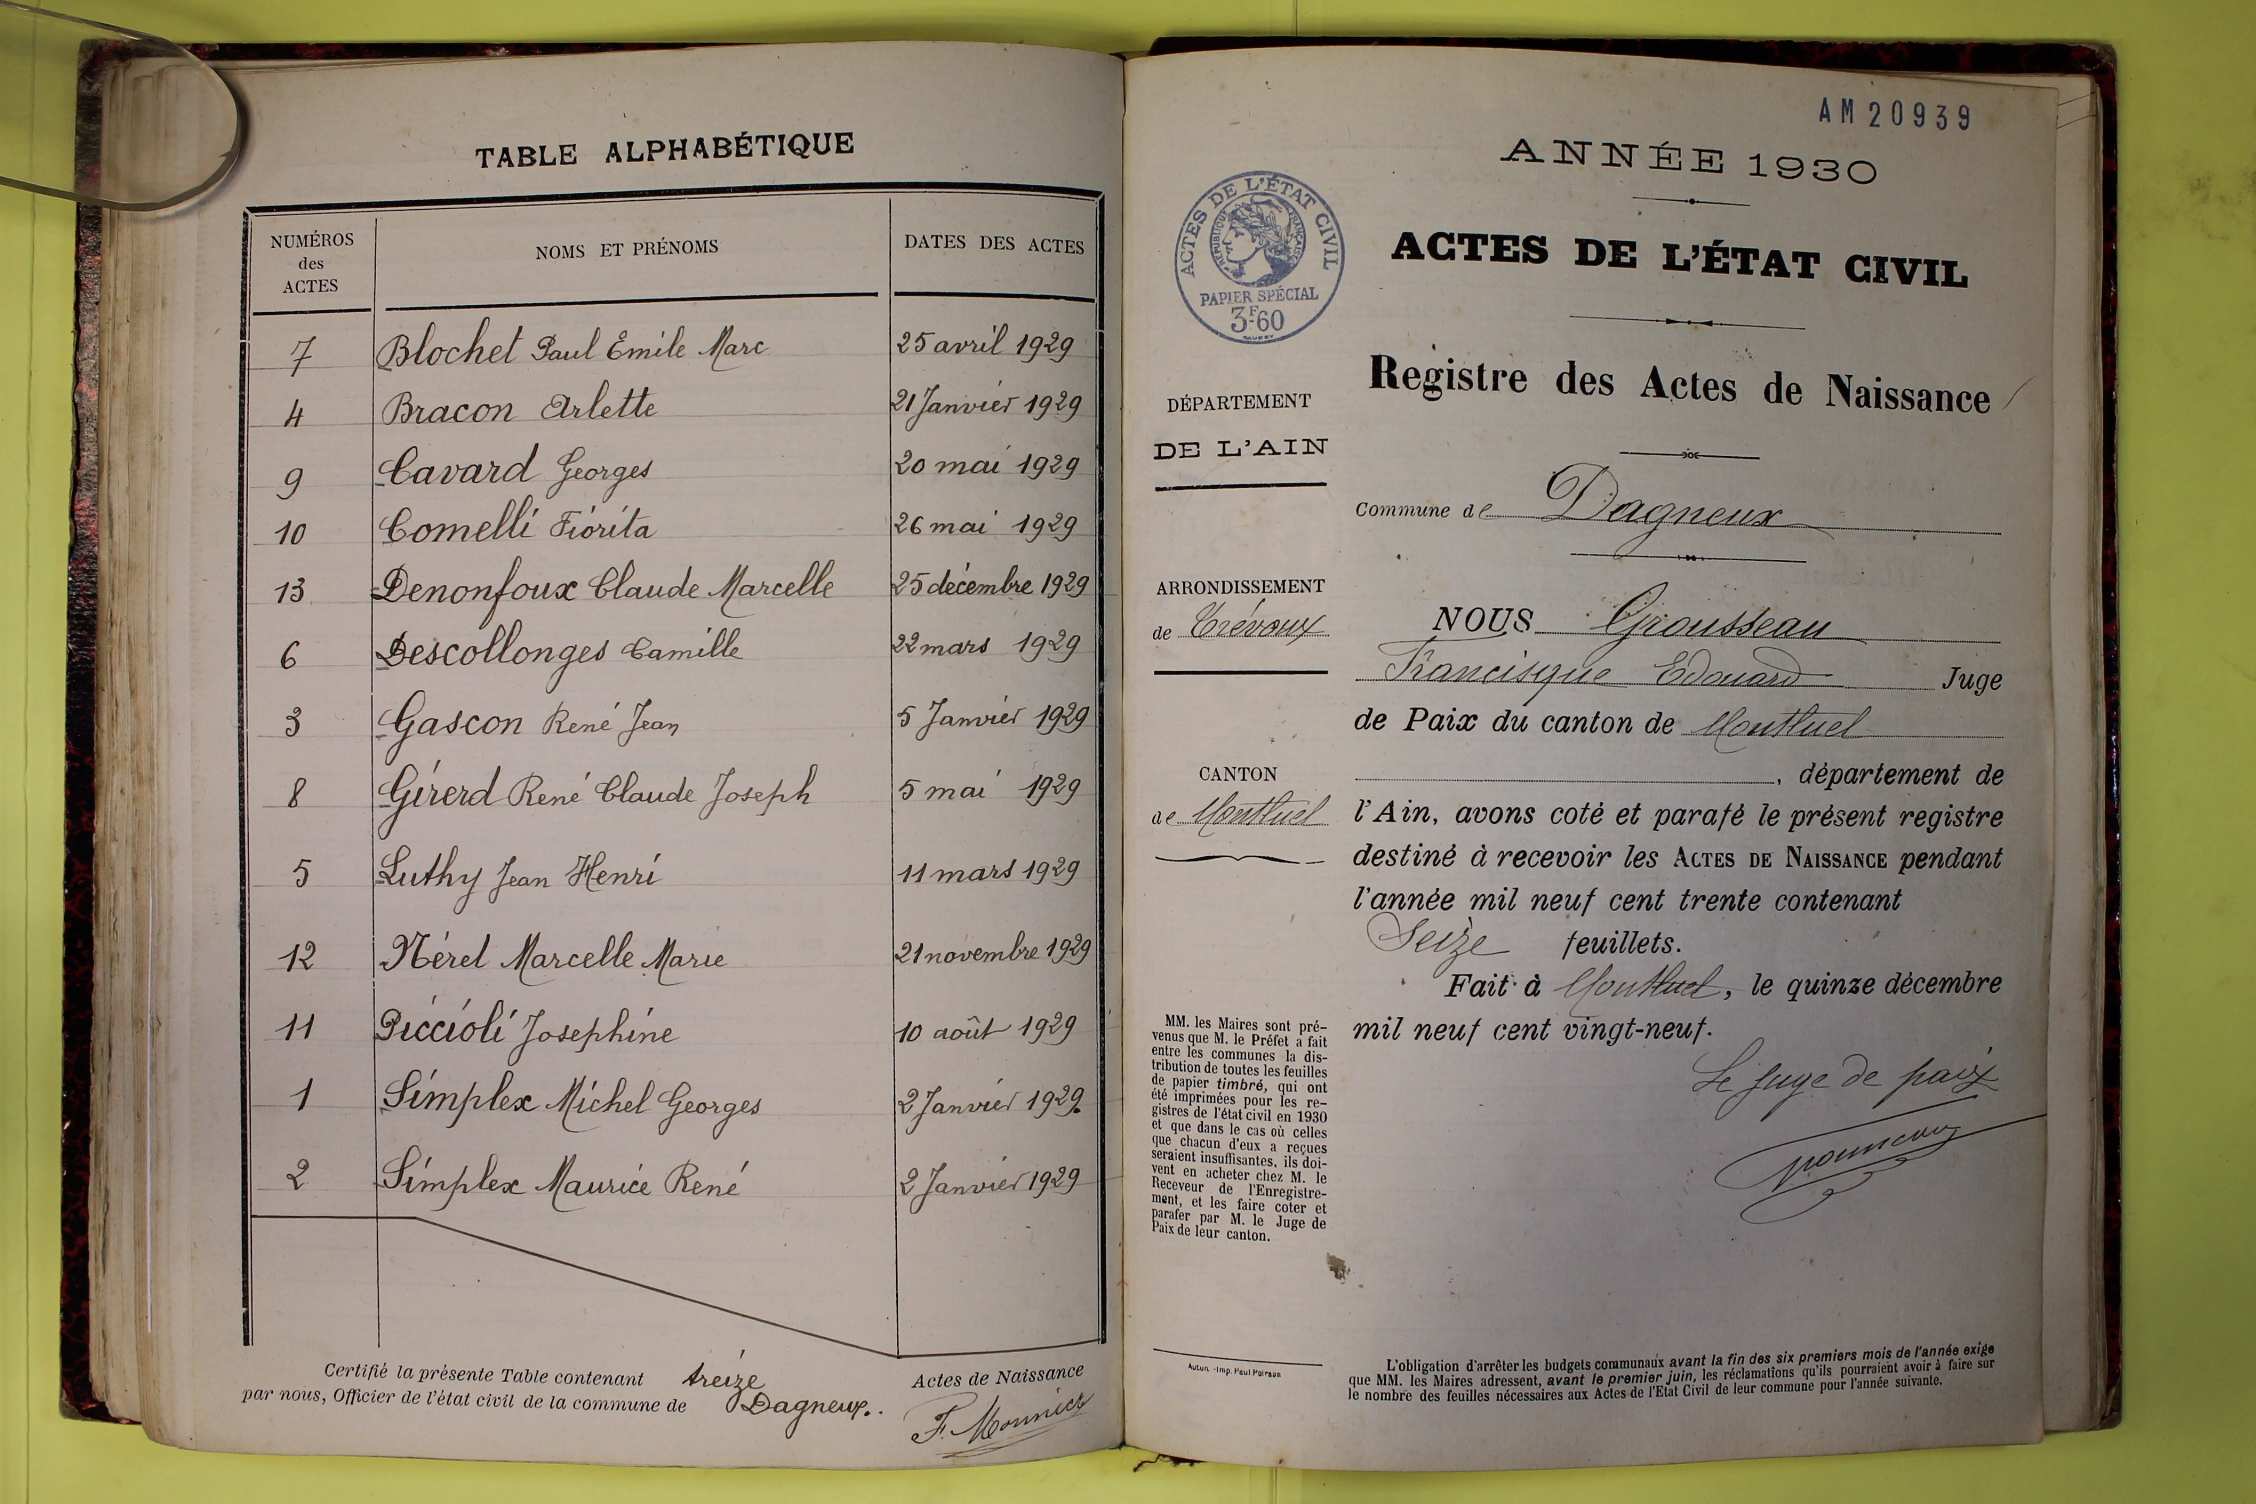 TABLE ALPHABÉTIQUE
NUMÉROS des ACTES NOMS ET PRÉNOMS DATES DES ACTES
7 Blochet Paul Émile Marc 25 avril 1929
4 Bracon Arlette 21 Janvier 1929
9 Cavard Georges 20 mai 1929
10 Comelli Fiorita 26 mai 1929
13 Denonfoux Claude Marcelle 25 décembre 1929
6 Descollonges Camille 22 mars 1929
3 Gascon René Jean 5 Janvier 1929
8 Girerd René Claude Joseph 5 mai 1929
5 Luthy Jean Henri 11 mars 1929
12 Nérel Marcelle Marie 21 novembre 1929
11 Piccioli Josephine 10 août 1929
1 Simplex Michel Georges 2 Janvier 1929
2 Simplex Maurice René 2 Janvier 1929
Certifié la présente Table contenant treize Actes de Naissance
par nous, Officier de l'état civil de la commune de Dagneux.
F. Mounier
AM 20939
ANNÉE 1930
ACTES DE L'ÉTAT CIVIL
RÉPUBLIQUE FRANÇAISE
PAPIER SPÉCIAL
3F60
ACTES DE L'ÉTAT CIVIL
Registre des Actes de Naissance
DÉPARTEMENT
DE L'AIN
Commune de Dagneux
ARRONDISSEMENT
de Trévoux
CANTON
de Montluel
NOUS Grousseau
Francisque Edouard Juge
de Paix du canton de Montluel
, département de
l'Ain, avons coté et parafé le présent registre
destiné à recevoir les ACTES DE NAISSANCE pendant
l'année mil neuf cent trente contenant
Seize feuillets.
Fait à Montluel, le quinze décembre
mil neuf cent vingt-neuf.
Le Juge de paix
MM. les Maires sont pré-
venus que M. le Préfet a fait
entre les communes la dis-
tribution de toutes les feuilles
de papier timbré, qui ont
été imprimées pour les re-
gistres de l'état civil en 1930
et que dans le cas où celles
que chacun d'eux a reçues
seraient insuffisantes, ils doi-
vent en acheter chez M. le
Receveur de l'Enregistre-
ment, et les faire coter et
parafer par M. le Juge de
Paix de leur canton.
Autun. - Imp. Paul Poirson
L'obligation d'arrêter les budgets communaux avant la fin des six premiers mois de l'année exige
que MM. les Maires adressent, avant le premier juin, les réclamations qu'ils pourraient avoir à faire sur
le nombre des feuilles nécessaires aux Actes de l'Etat Civil de leur commune pour l'année suivante.